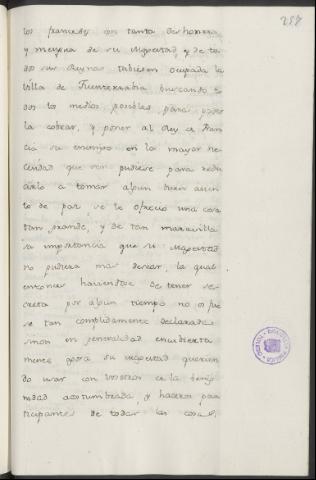 258
los franceses con tanta deshonera
y mengua de su Magestad, y de to
dos sus Reynos tubiesen ocupada la
Villa de Fuenterrabia buscando to
dos los medios posibles para poder
la cobrar, y poner al Rey de Fran
cia su enemigo en la mayor ne
cesidad que ser pudiese para redu
cirlo a tomar algun buen asien
to de paz, se le ofrecio una cosa
tan grande, y de tan maravillo
sa importancia que su Magestad
no pudiera mas desear, la qual
entonces haviendose de tener se
creta por algun tiempo no os fue
se tan complidamente declarada
sinon en generalidad encubierta
mente agora su magestad querien
do usar con vosotros de la benig
nidad acostumbrada, y haceros par
ticipantes de todas las cosas,